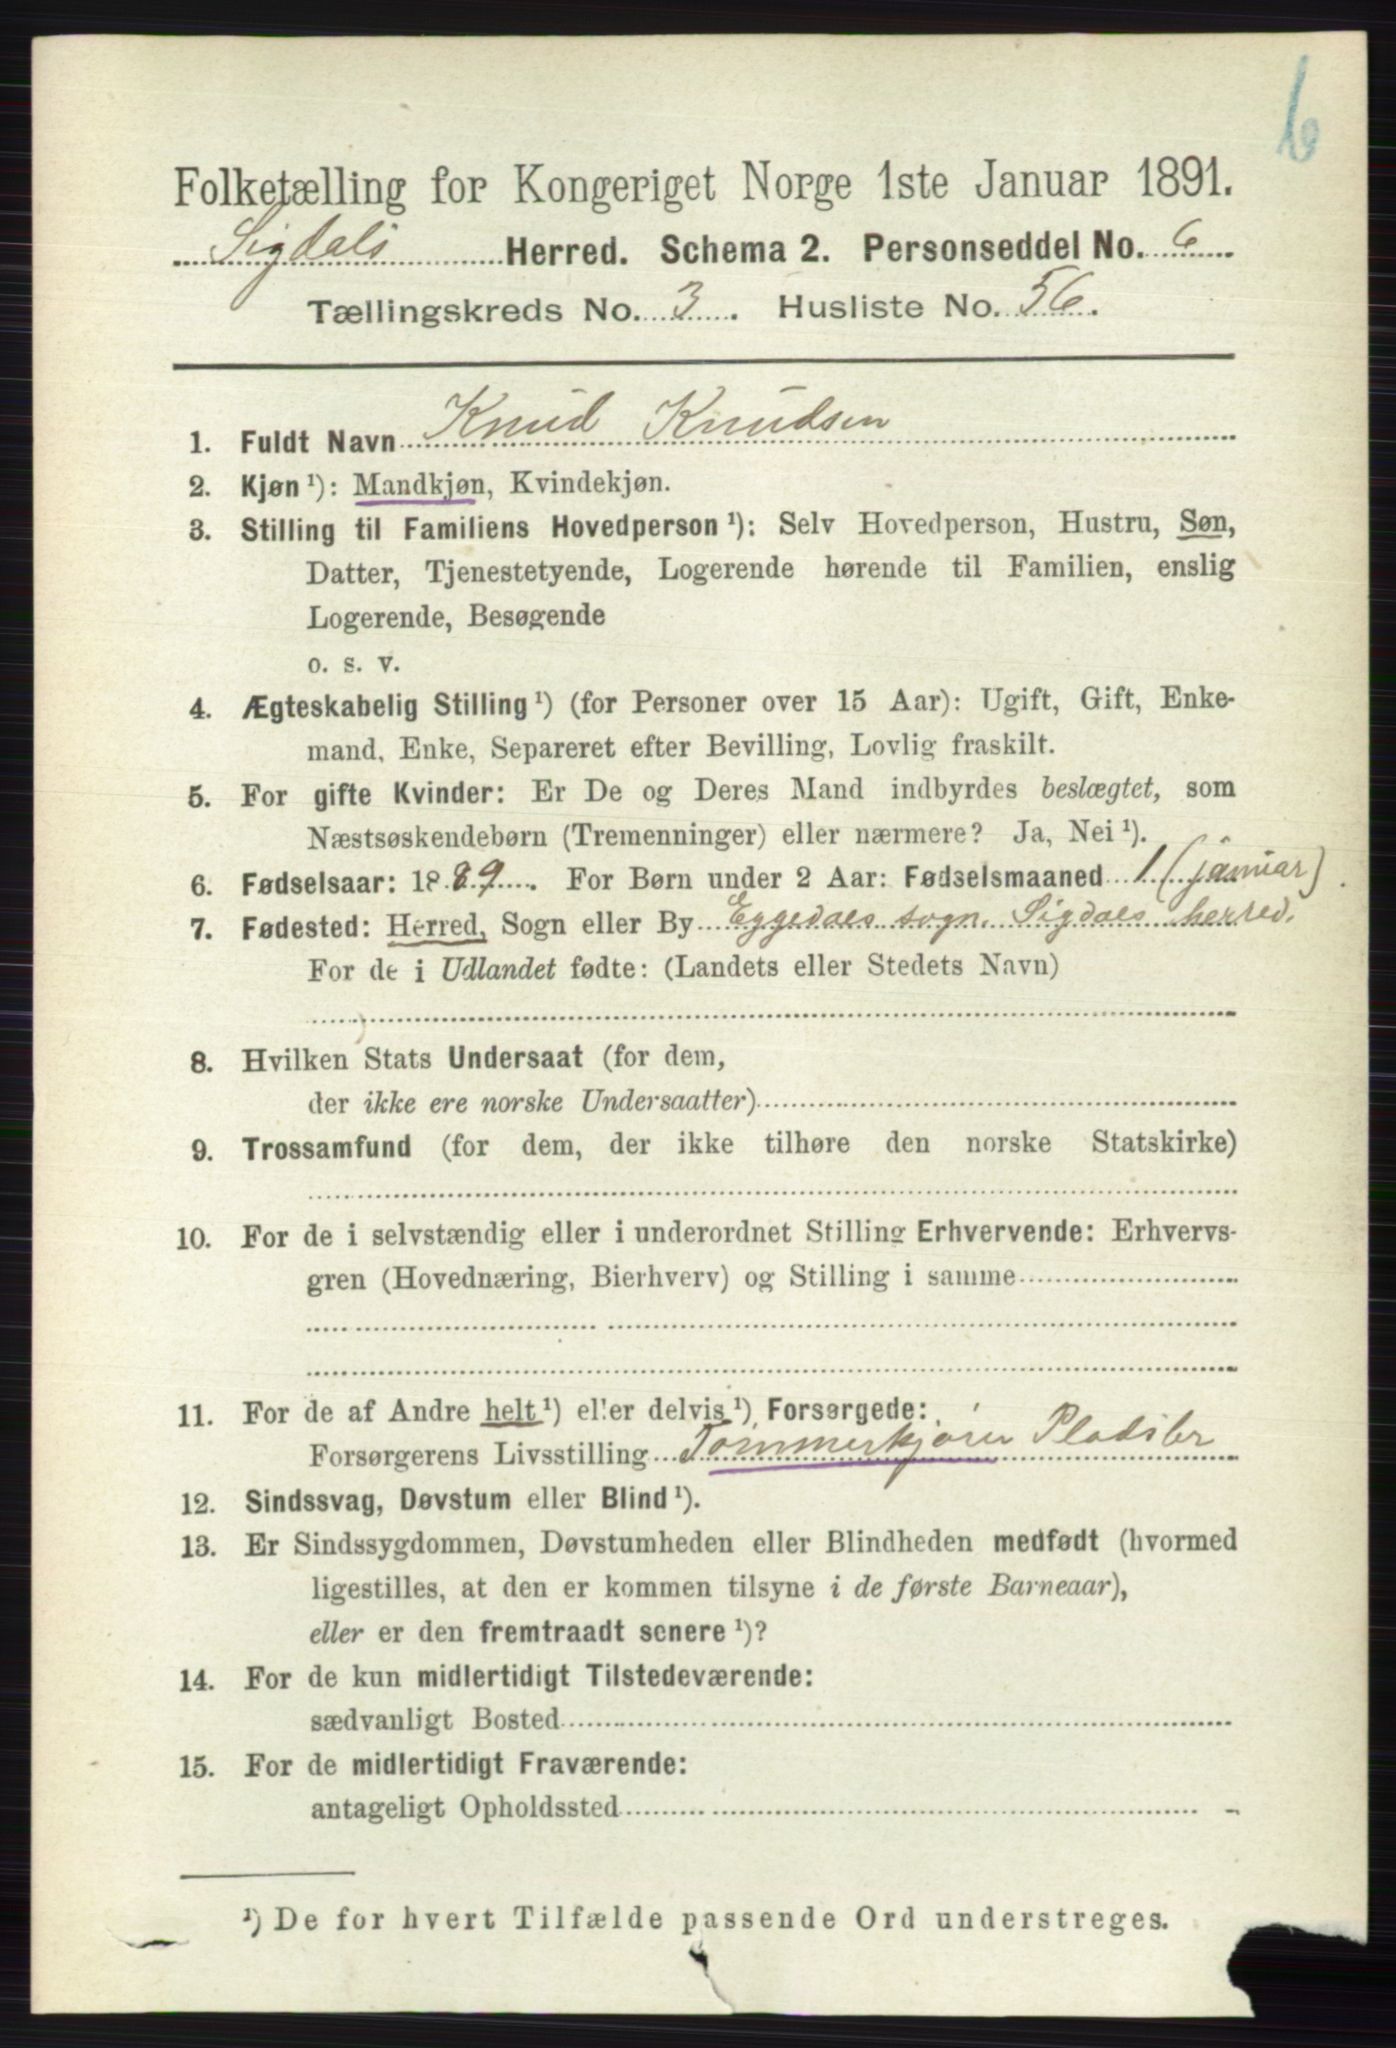 6
Folketælling for Kongeriget Norge 1ste Januar 1891.
Sigdals Herred. Schema 2. Personseddel No. 6
Tællingskreds No. 3. Husliste No. 56.
1. Fuldt Navn Knud Knudsen
2. Kjøn ¹): Mandkjøn, Kvindekjøn.
3. Stilling til Familiens Hovedperson ¹): Selv Hovedperson, Hustru, Søn,
Datter, Tjenestetyende, Logerende hørende til Familien, enslig
Logerende, Besøgende
o. s. v.
4. Ægteskabelig Stilling ¹) (for Personer over 15 Aar): Ugift, Gift, Enke-
mand, Enke, Separeret efter Bevilling, Lovlig fraskilt.
5. For gifte Kvinder: Er De og Deres Mand indbyrdes beslægtet, som
Næstsøskendebørn (Tremenninger) eller nærmere? Ja, Nei ¹).
6. Fødselsaar: 1889. For Børn under 2 Aar: Fødselsmaaned 1 (januar).
7. Fødested: Herred, Sogn eller By Eggedals sogn. Sigdals herred.
For de i Udlandet fødte: (Landets eller Stedets Navn)
8. Hvilken Stats Undersaat (for dem,
der ikke ere norske Undersaatter)
9. Trossamfund (for dem, der ikke tilhøre den norske Statskirke)
10. For de i selvstændig eller i underordnet Stilling Erhvervende: Erhvervs-
gren (Hovednæring, Bierhverv) og Stilling i samme
11. For de af Andre helt ¹) eller delvis ¹) Forsørgede:
Forsørgerens Livsstilling Tømmerkjører Pladsbr
12. Sindssvag, Døvstum eller Blind ¹).
13. Er Sindssygdommen, Døvstumheden eller Blindheden medfødt (hvormed
ligestilles, at den er kommen tilsyne i de første Barneaar),
eller er den fremtraadt senere ¹)?
14. For de kun midlertidigt Tilstedeværende:
sædvanligt Bosted
15. For de midlertidigt Fraværende:
antageligt Opholdssted
¹) De for hvert Tilfælde passende Ord understreges.